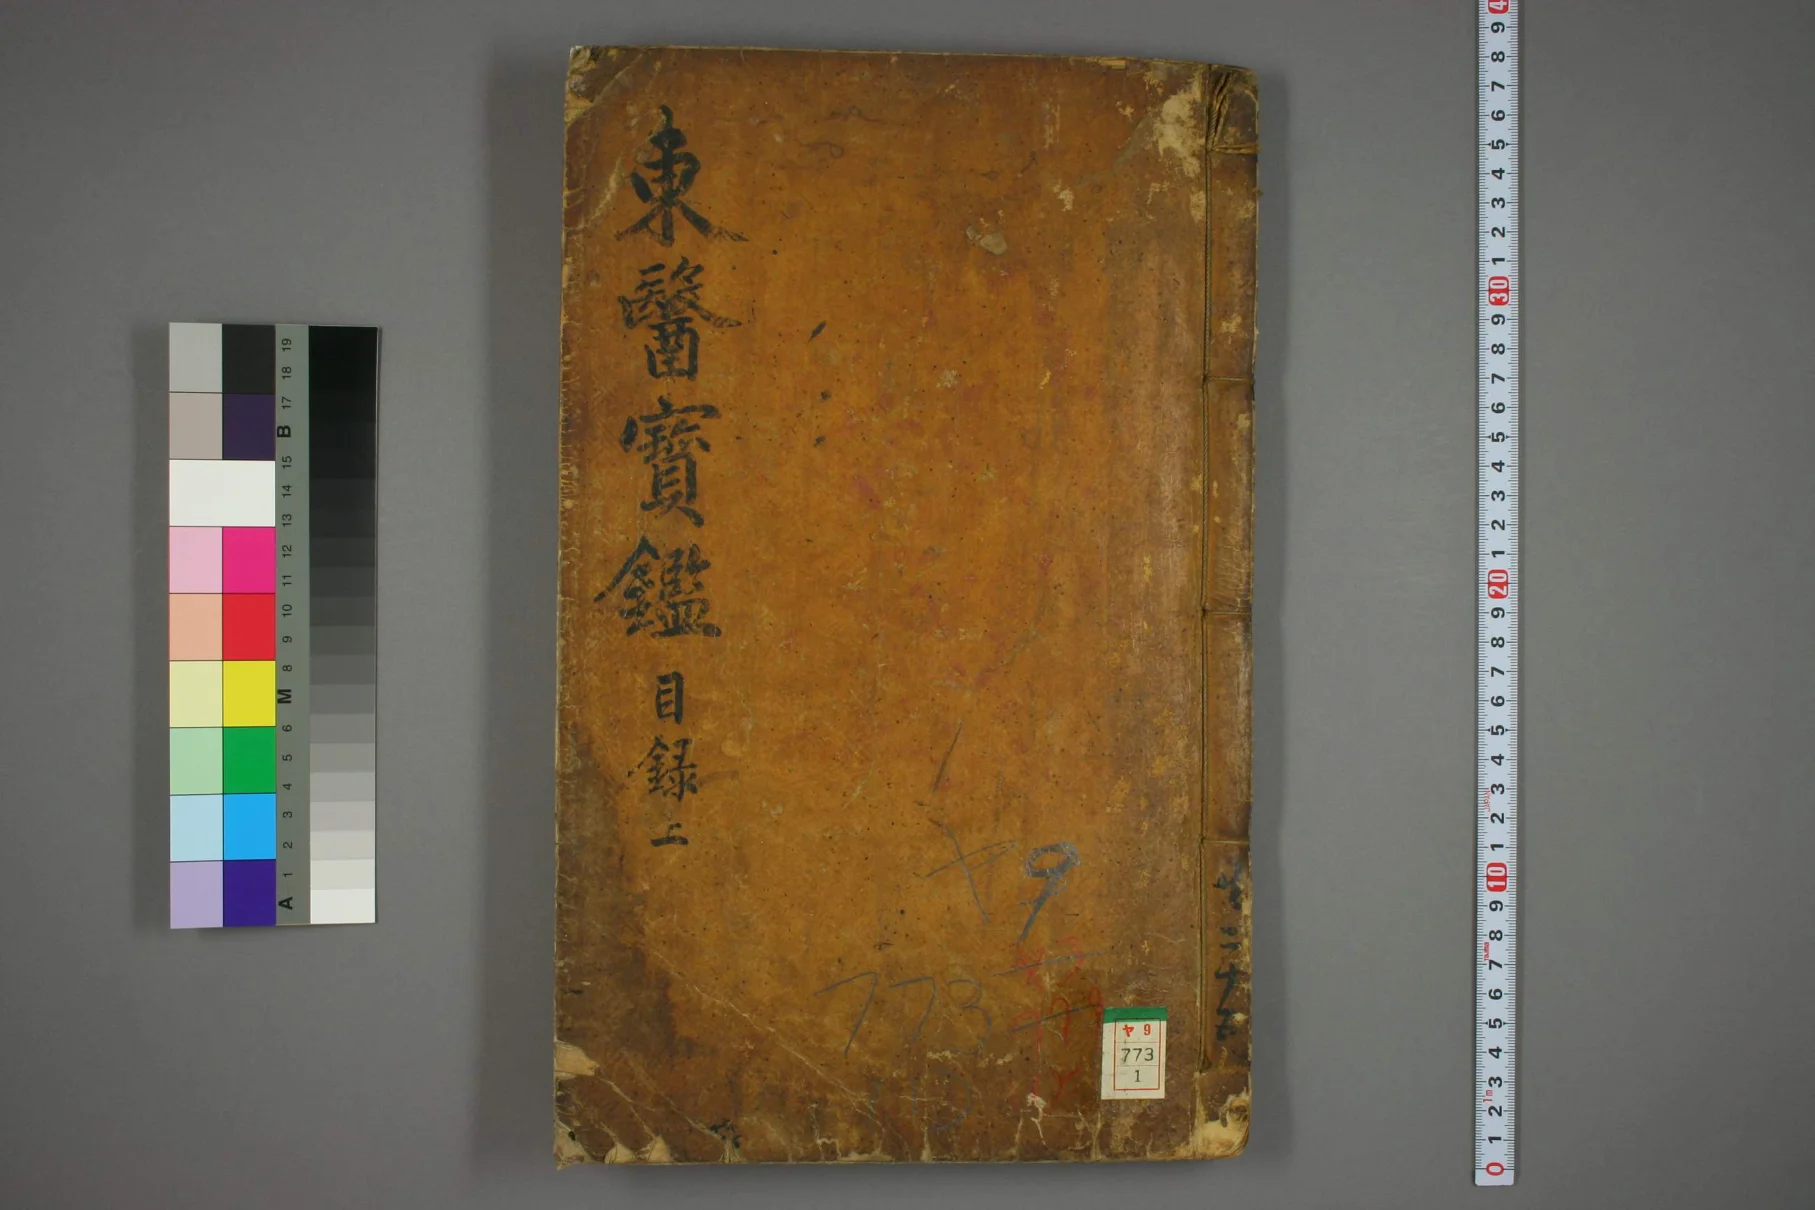 東醫寶鑑 目録 上
ヤ9
773
ヤ 9
773
1
19
18
17
B
15
14
13
12
11
10
9
8
M
6
5
4
3
2
1
A
4
9
8
7
6
5
4
3
2
1
30
9
8
7
6
5
4
3
2
1
20
9
8
7
6
5
4
3
2
1
10
9
8
7
6
5
4
3
2
1
0
1m